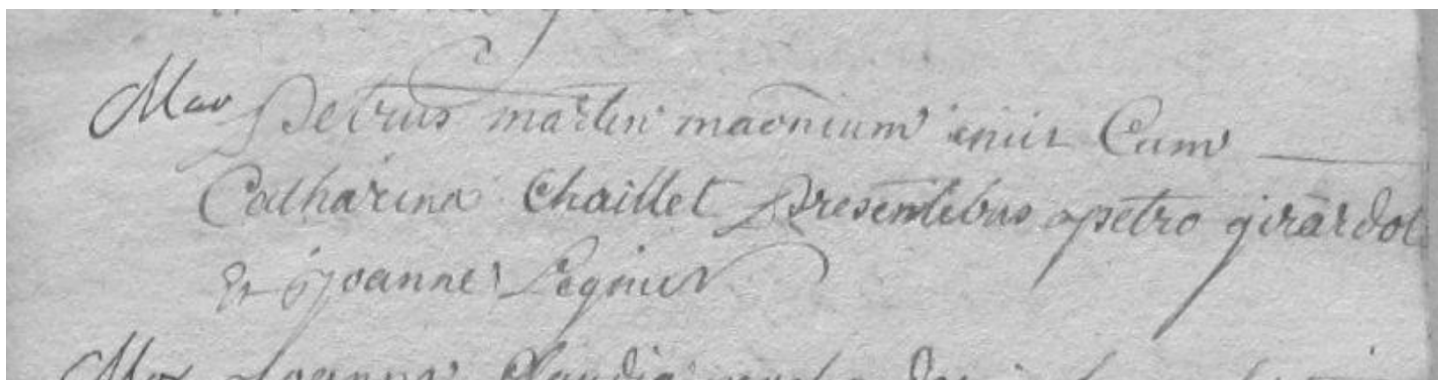 Mar Petrus martin maōnium iniit Cum
Catharina Chaillet presentibus petro girardot
Et Joanne
Joanna Claudia